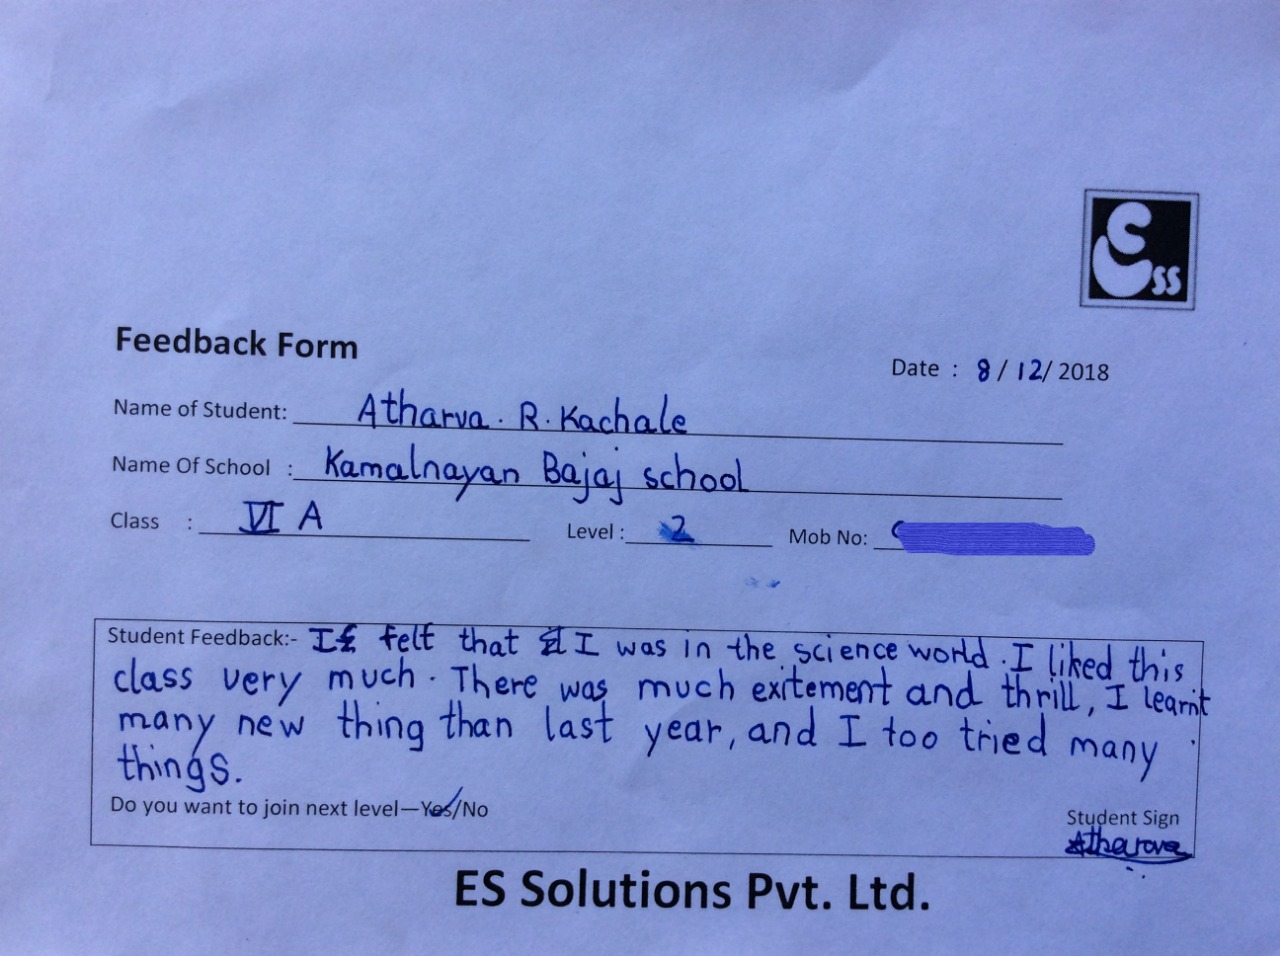 ss
Feedback Form
Date : 8/12/2018
Name of Student: Atharva. R. Kachale
Name Of School : Kamalnayan Bajaj school
Class : VI A Level : 2 Mob No:
Student Feedback:- I felt that I was in the science world. I liked this
class very much. There was much exitement and thrill, I learnt
many new thing than last year, and I too tried many
things.
Do you want to join next level—Yes/No
Student Sign
Atharva
ES Solutions Pvt. Ltd.